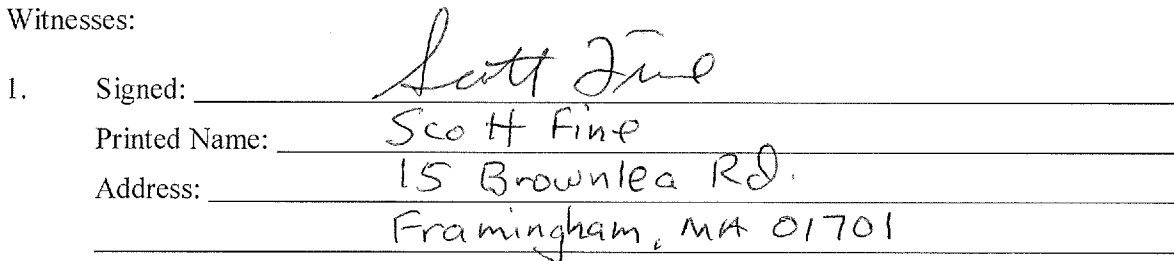 Witnesses:
1. Signed: Scott Fine
Printed Name: Scott Fine
Address: 15 Brownlea Rd.
Framingham, MA 01701